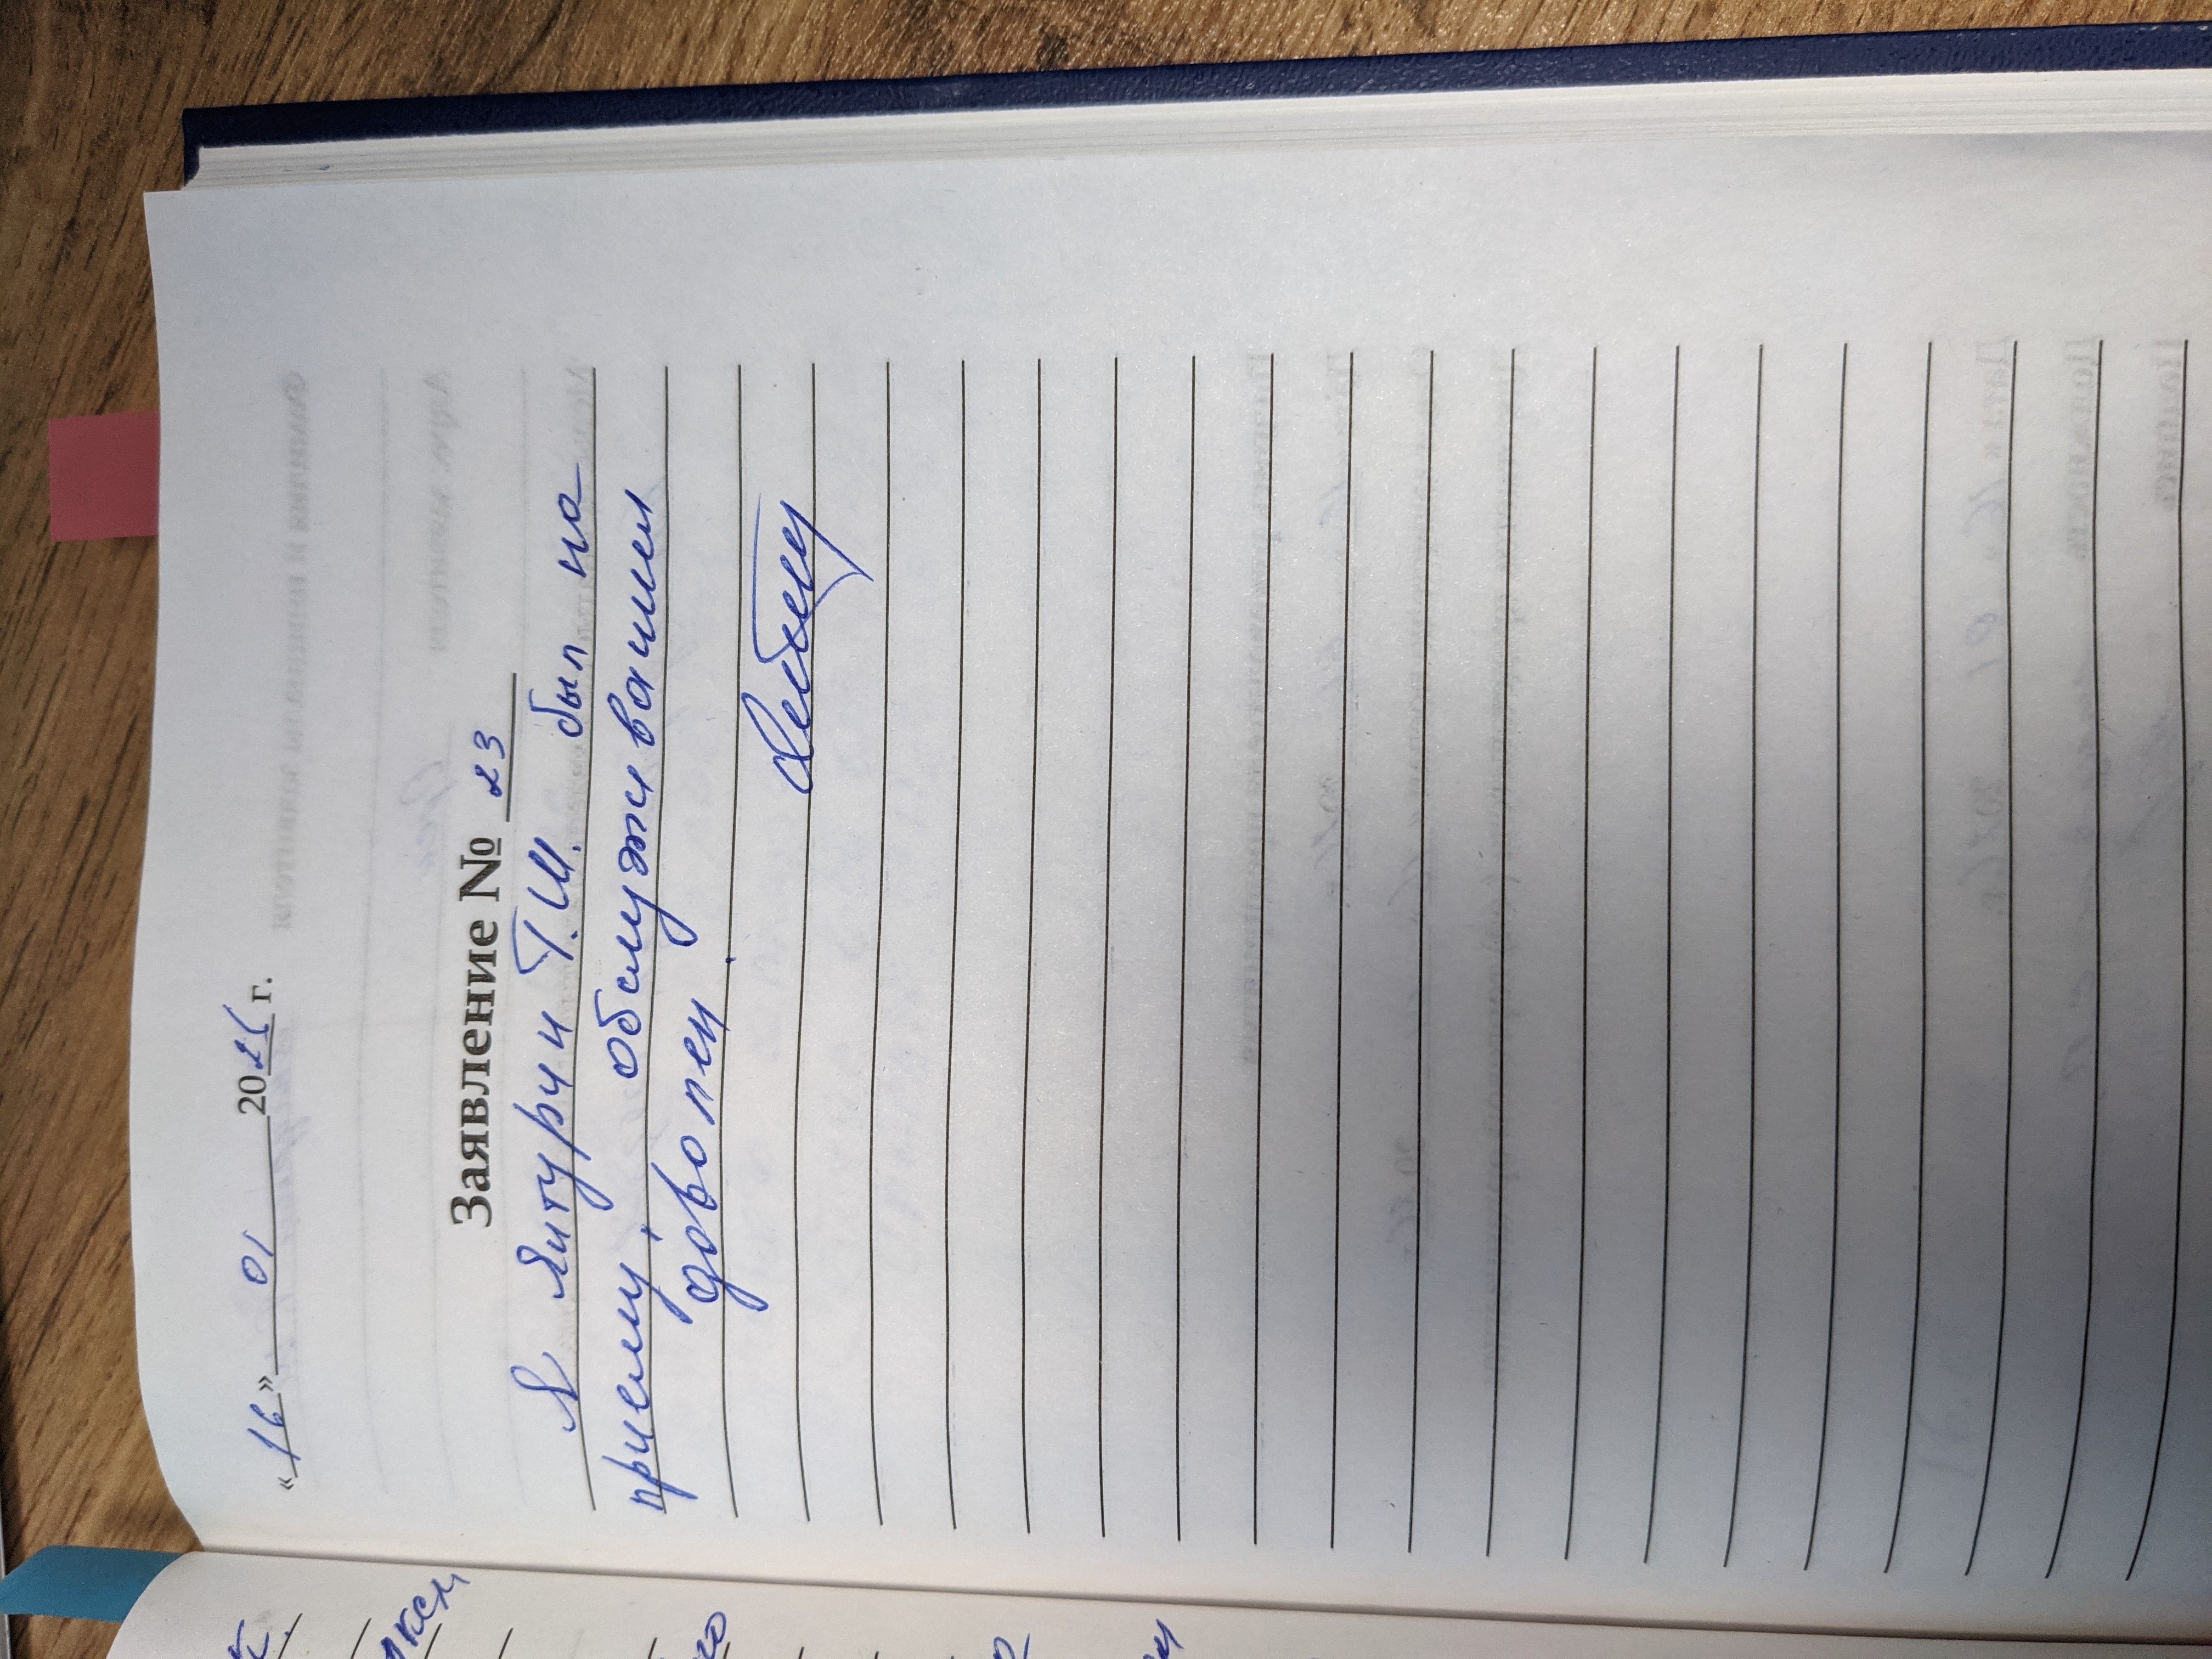 «16» 01 2025 г.
Заявление № 23
Я Янтурин Т.Ш. был на
приему, обслуживанием
доволен.